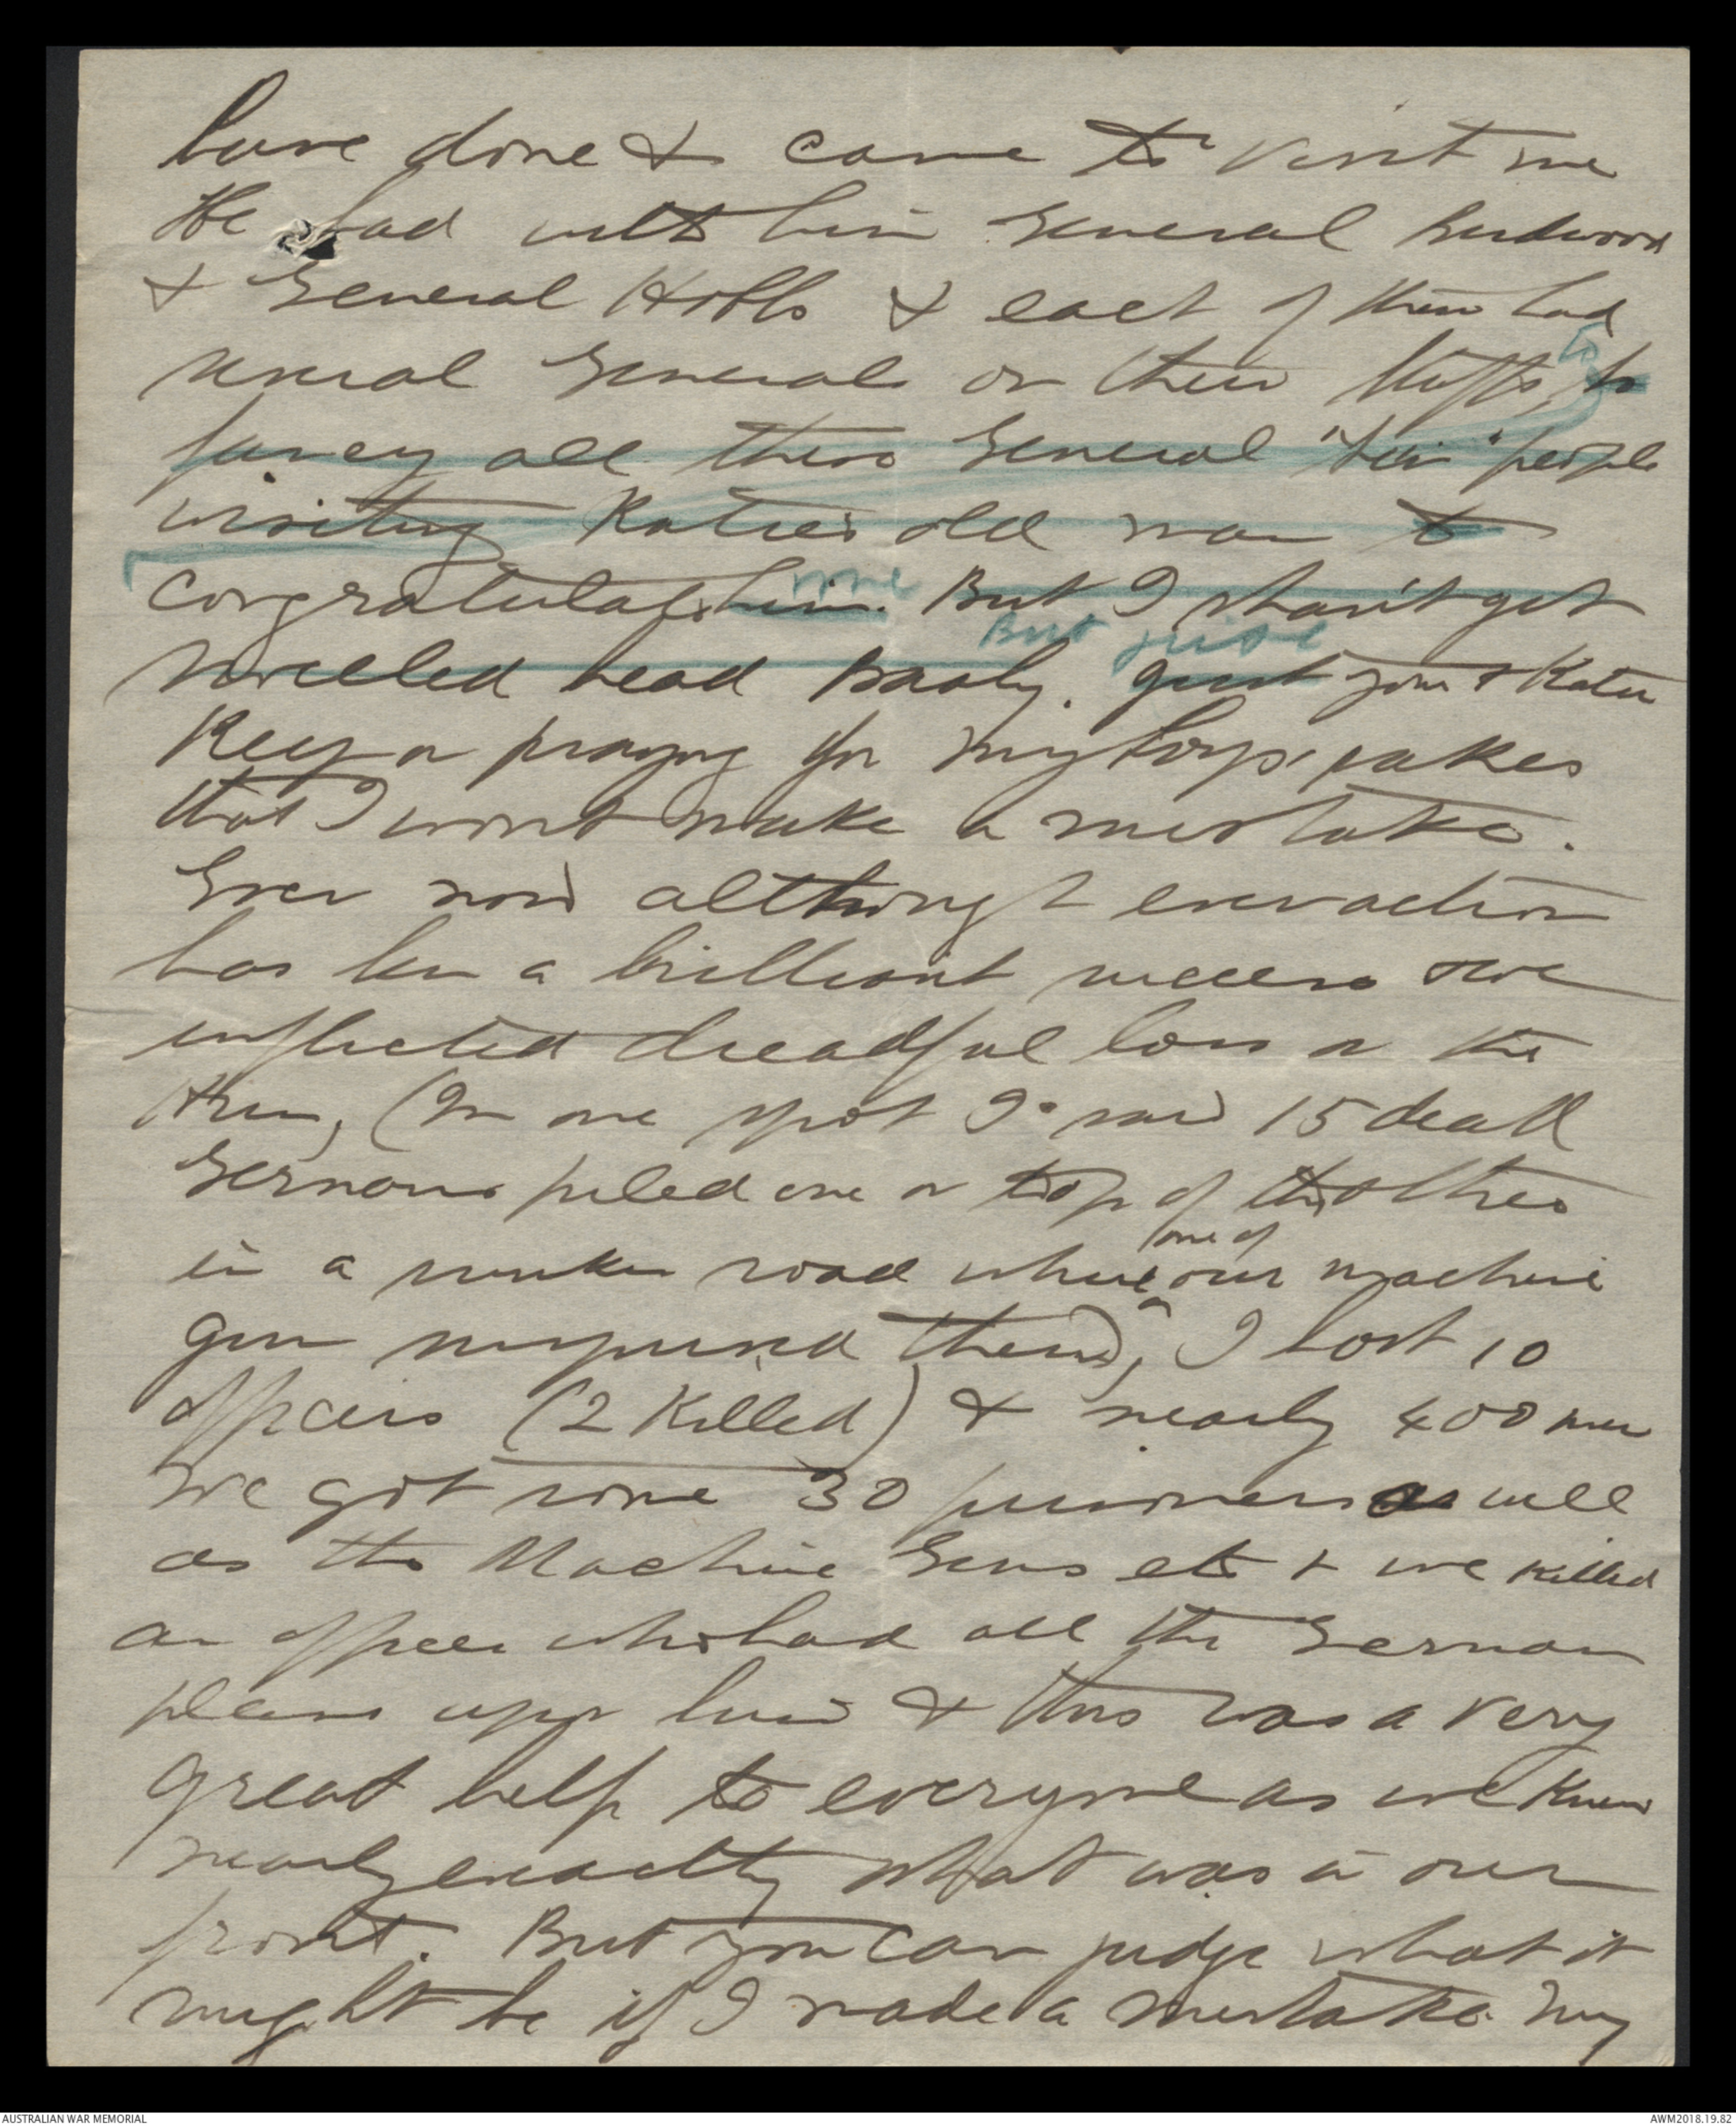 have done & came to visit me
He had with him General Birdwood
& General Hobbs & each of them had
several Generals on their staffs, to to
fancy all these General "fein" people
visiting Katie's old man to
congratulate him. me But I shan't get
But just
swelled head Baaly. Just you & Katie
Keep on praying for my boys' sakes
that I wont make a mistake.
Even now although evervaction
has been a brilliant success & we
inflicted dreadful loss on the
Hun, (In one spot I saw 15 dead
Germans piled one on top of the other
one of
in a sunken road where our machine
gun surprised them), I lost 10
officers (2 Killed) & nearly 400 men
We got some 30 prisoners as well
as the Machine Guns etc & we killed
an officer who had all the German
plans upon him & this was a very
great help to everyone as we knew
nearly exactly what was in our
front. But you can judge what it
might be if I made a mistake. My
AUSTRALIAN WAR MEMORIAL
AWM2018.19.82